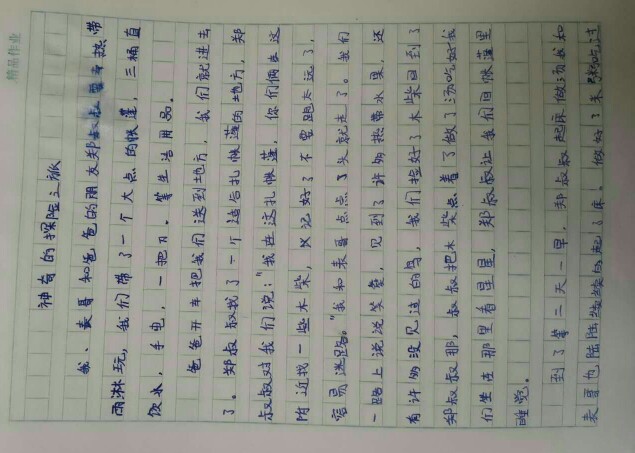 精品作业
神奇的探险之旅
我、表哥和爸爸的朋友郑叔叔要去热带
雨淋玩，我们带了一个大点的帐蓬，三桶直
饮水，手电，一把刀。等生活用品。
爸爸开车把我们送到地方，我们就进去
了。郑叔叔找了一个适合扎帐蓬的地方，郑
叔叔对我们说："我在这扎帐蓬，你们俩在这
附近找一些木柴，记好了不要跑太远了，
容易迷路。"我和表哥点点了头就走了。我们
一路上说说笑笑，见到了许多热带水果，还
有许多没见过的鸟，我们捡好了木柴回到了
郑叔叔那，叔叔把木柴点着了做了汤吃好我
们坐在那里看星星，郑叔叔让我们回帐蓬里
睡觉。
到了第二天一早，郑叔叔起床做汤我和
表哥也陆陆续续的起了床。做好了来吃过